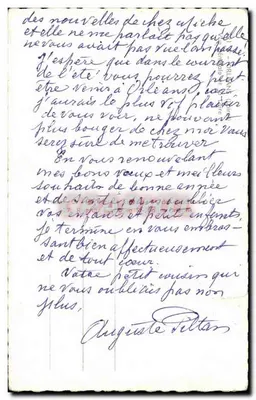 des nouvelles de chez
et elle ne me parlait pas qu'elle
ne vous avait pas vue l'an passé.
J'espère que dans le courant
de l'été vous pourrez peut
être venir à Orléans, car
j'aurais le plus vif plaisir
de vous voir, ne pouvant
plus bouger de chez moi vous
serez sûre de me trouver
En vous renouvelant
mes bons vœux et meilleurs
souhaits de bonne année
et de
vos enfants et petits enfants
je termine en vous embras-
sant bien affectueusement
et de tout cœur.
Votre petit cousin qui
ne vous oublie pas non
plus.
Auguste